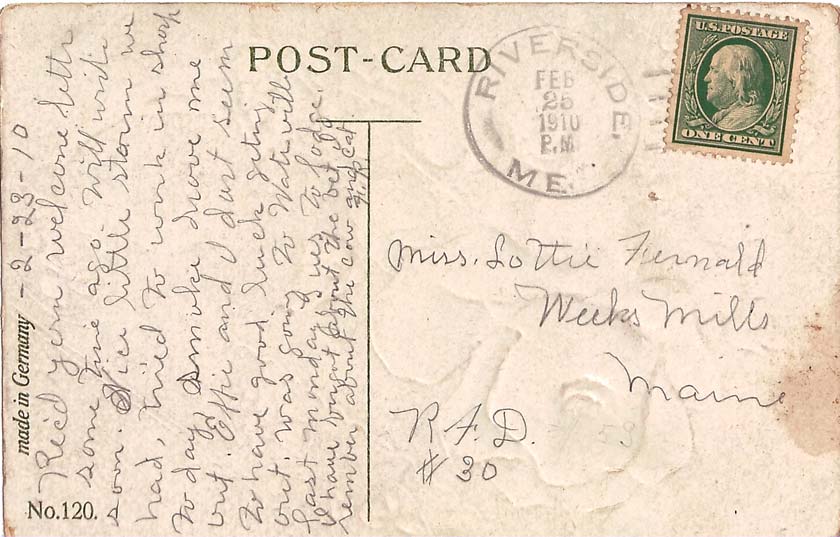 POST-CARD
RIVERSIDE,
FEB
25
1910
P.M.
ME.
U.S. POSTAGE
ONE CENT
made in Germany
No. 120.
-2-23-10
Rec'd your welcome letter
some time ago. Will write
soon. Nice little storm we
had, tried to work in shop
to day smoke drove me
out. Effie and I dont seem
to have good luck geting
out. was going to Waterville
last monday eve, to Lodge.
I have forgot about the bet
remember about the cow and cat
Miss. Lottie Fernald
Weeks Mills
Maine
R.F.D.
# 30